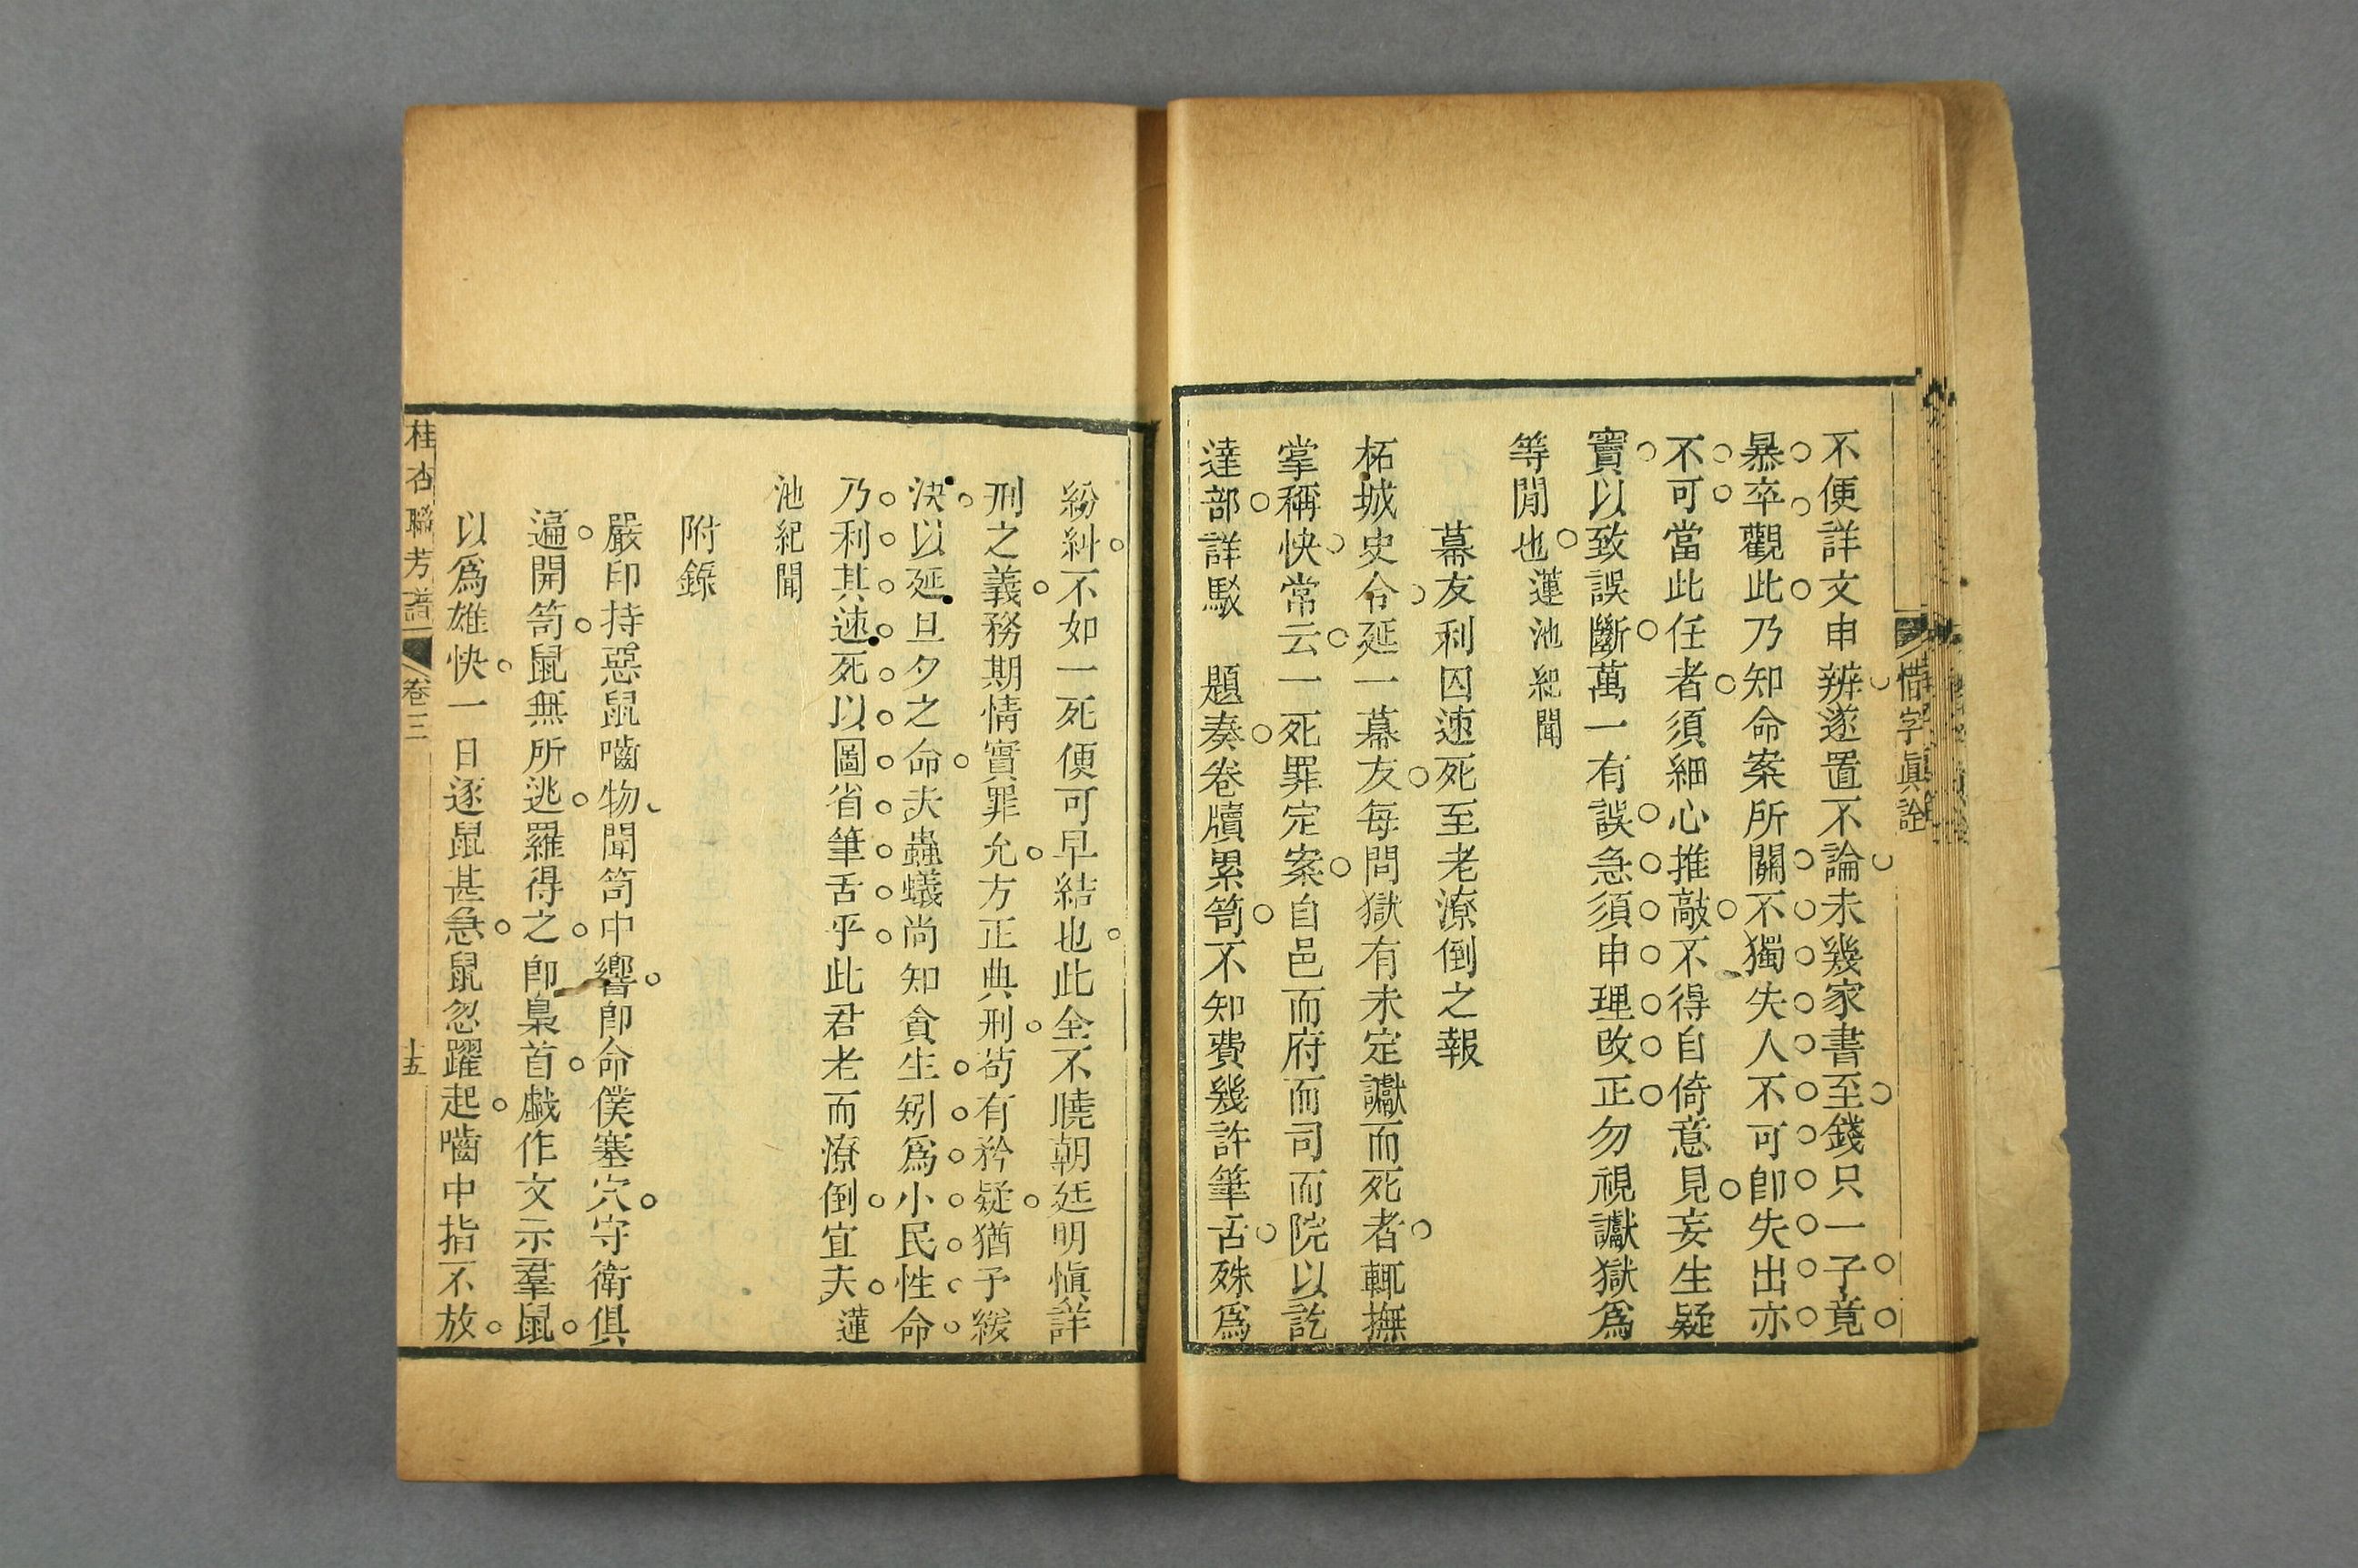 惜字眞詮
不便詳文申辨遂置不論未幾家書至錢只一子竟
暴卒觀此乃知命案所關不獨失人不可卽失出亦
不可當此任者須細心推敲不得自倚意見妄生疑
竇以致誤斷萬一有誤急須申理改正勿視讞獄爲
等閒也蓮池紀聞
幕友利囚速死至老潦倒之報
柘城史令延一幕友每問獄有未定讞而死者輒撫
掌稱快常云一死罪定案自邑而府而司而院以訖
達部詳駁　題奏卷牘累笥不知費幾許筆舌殊爲
紛糾不如一死便可早結也此全不曉朝廷明愼詳
刑之義務期情實罪允方正典刑苟有矜疑猶予緩
決以延旦夕之命夫蟲蟻尚知貪生矧爲小民性命
乃利其速死以圖省筆舌乎此君老而潦倒宜夫蓮
池紀聞
附錄
嚴印持惡鼠嚙物聞笥中響卽命僕塞穴守衛俱
逼開笥鼠無所逃羅得之卽梟首戲作文示羣鼠
以爲雄快一日逐鼠甚急鼠忽躍起嚙中指不放
桂杏聯芳譜　卷三　十五